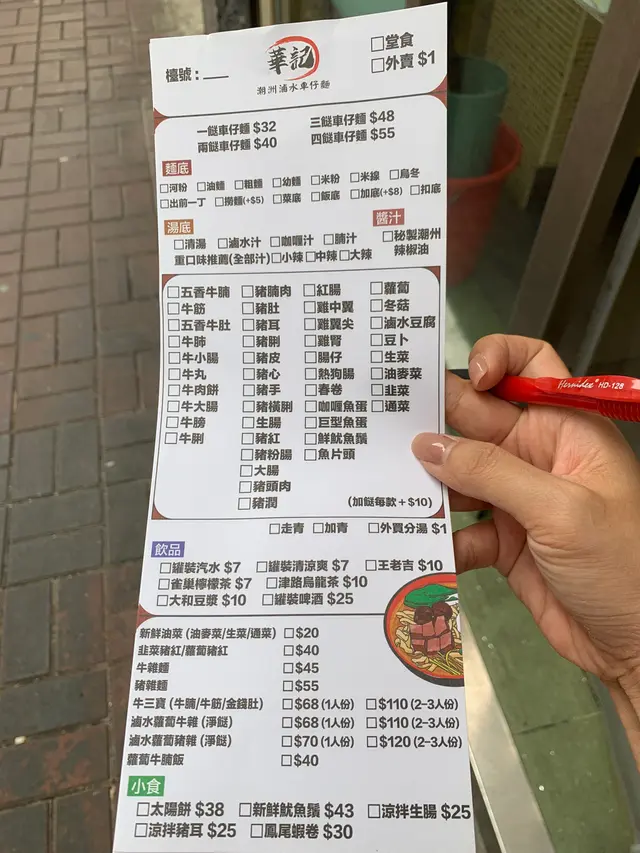 檯號：
華記
潮洲滷水車仔麵
□堂食
□外賣 $1
一餸車仔麵 $32 三餸車仔麵 $48
兩餸車仔麵 $40 四餸車仔麵 $55
麵底
□河粉 □油麵 □粗麵 □幼麵 □米粉 □米線 □烏冬
□出前一丁 □撈麵(+$5) □菜底 □飯底 □加底(+$8) □扣底
湯底
□清湯 □滷水汁 □咖喱汁 □腩汁
重口味推薦(全部汁) □小辣 □中辣 □大辣
醬汁
□秘製潮州
辣椒油
□五香牛腩 □豬腩肉 □紅腸 □蘿蔔
□牛筋 □豬肚 □雞中翼 □冬菇
□五香牛肚 □豬耳 □雞翼尖 □滷水豆腐
□牛肺 □豬脷 □雞腎 □豆卜
□牛小腸 □豬皮 □腸仔 □生菜
□牛丸 □豬心 □熱狗腸 □油麥菜
□牛肉餅 □豬手 □春卷 □韮菜
□牛大腸 □豬橫脷 □咖喱魚蛋 □通菜
□牛膀 □生腸 □巨型魚蛋
□牛脷 □豬紅 □鮮魷魚鬚
□豬粉腸 □魚片頭
□大腸
□豬頭肉
□豬潤 (加餸每款+$10)
□走青 □加青 □外買分湯 $1
飲品
□罐裝汽水 $7 □罐裝清涼爽 $7 □王老吉 $10
□雀巢檸檬茶 $7 □津路烏龍茶 $10
□大和豆漿 $10 □罐裝啤酒 $25
新鮮油菜 (油麥菜/生菜/通菜) □$20
韮菜豬紅/蘿蔔豬紅 □$40
牛雜麵 □$45
豬雜麵 □$55
牛三寶 (牛腩/牛筋/金錢肚) □$68 (1人份) □$110 (2-3人份)
滷水蘿蔔牛雜 (淨餸) □$68 (1人份) □$110 (2-3人份)
滷水蘿蔔豬雜 (淨餸) □$70 (1人份) □$120 (2-3人份)
蘿蔔牛腩飯 □$40
小食
□太陽餅 $38 □新鮮魷魚鬚 $43 □涼拌生腸 $25
□涼拌豬耳 $25 □鳳尾蝦卷 $30
Hernidex HD-128